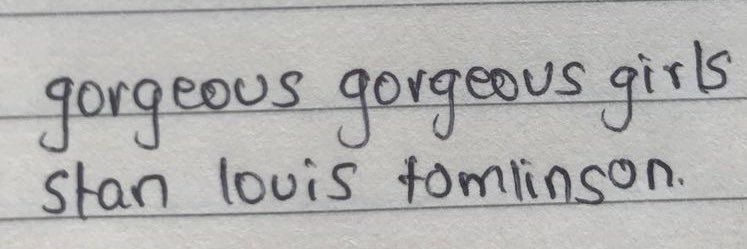 gorgeous gorgeous girls
stan louis tomlinson.